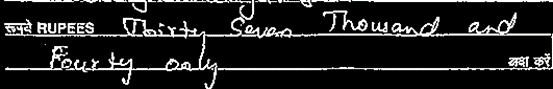 रूपये RUPEES Thirty Seven Thousand and
Fourty only अदा करें